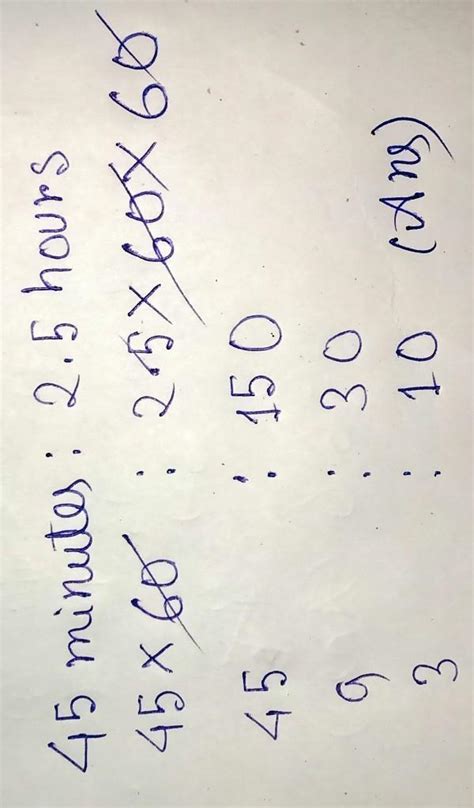 45 minutes : 2.5 hours
45 × 60 : 2.5 × 60 × 60
45 : 150
9 : 30
3 : 10 (Ans)